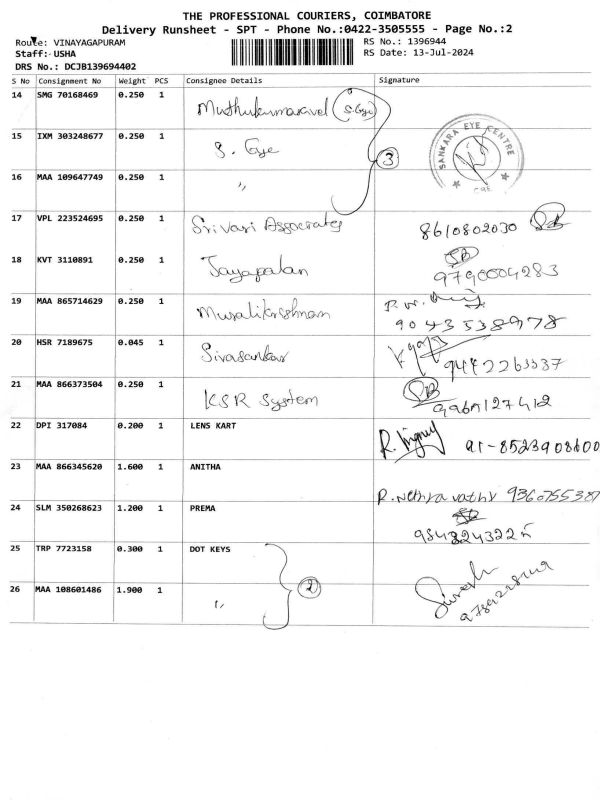 THE PROFESSIONAL COURIERS, COIMBATORE
Delivery Runsheet - SPT - Phone No.:0422-3505555 - Page No.:2
Route: VINAYAGAPURAM
RS No.: 1396944
Staff: USHA
RS Date: 13-Jul-2024
DRS No.: DCJB139694402
S No Consignment No Weight PCS Consignee Details Signature
14 SMG 70168469 0.250 1 Muthukumaravel (S. Eye)
15 IXM 303248677 0.250 1 S. Eye
SANKARA EYE CENTRE
CBE
16 MAA 109647749 0.250 1 "
3
17 VPL 223524695 0.250 1 Srivari Associates 8610802030 SB
18 KVT 3110891 0.250 1 Jayapalan SB 9790004283
19 MAA 865714629 0.250 1 Muralikrishnan 90435 38978
20 HSR 7189675 0.045 1 Sivasankar
21 MAA 866373504 0.250 1 KSR System SB
22 DPI 317084 0.200 1 LENS KART 91-8523908600
23 MAA 866345620 1.600 1 ANITHA R. Nethravathy 9360755387
24 SLM 350268623 1.200 1 PREMA
25 TRP 7723158 0.300 1 DOT KEYS
2
26 MAA 108601486 1.900 1 " Suresh